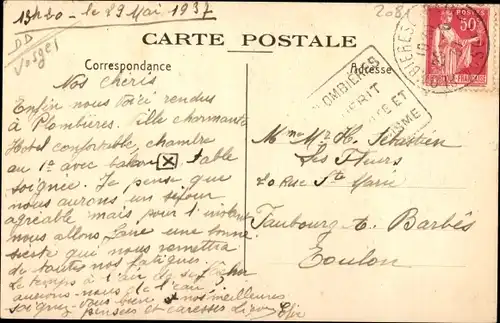 13h20 - le 29 Mai 1937
DD
Vosges
2081
CARTE POSTALE
Correspondance
Adresse
50
PLOMBIÈRES
Nos chéris
Enfin nous voici rendus
à Plombières. Ville charmante
Hotel confortable, chambre
au 1º avec balcon Table
soignée. Je pense que
nous aurons un séjour
agréable mais pour l'instant
nous allons faire une bonne
sieste qui nous remettra
de toutes nos fatigues.
Le temps à l'air de se
aurons nous de l'eau
soignez-vous bien nos meilleures
pensées et caresses
Mme Mr H. Sébastien
Les Fleurs
20 Rue Ste Marie
Faubourg Barbès
Toulon